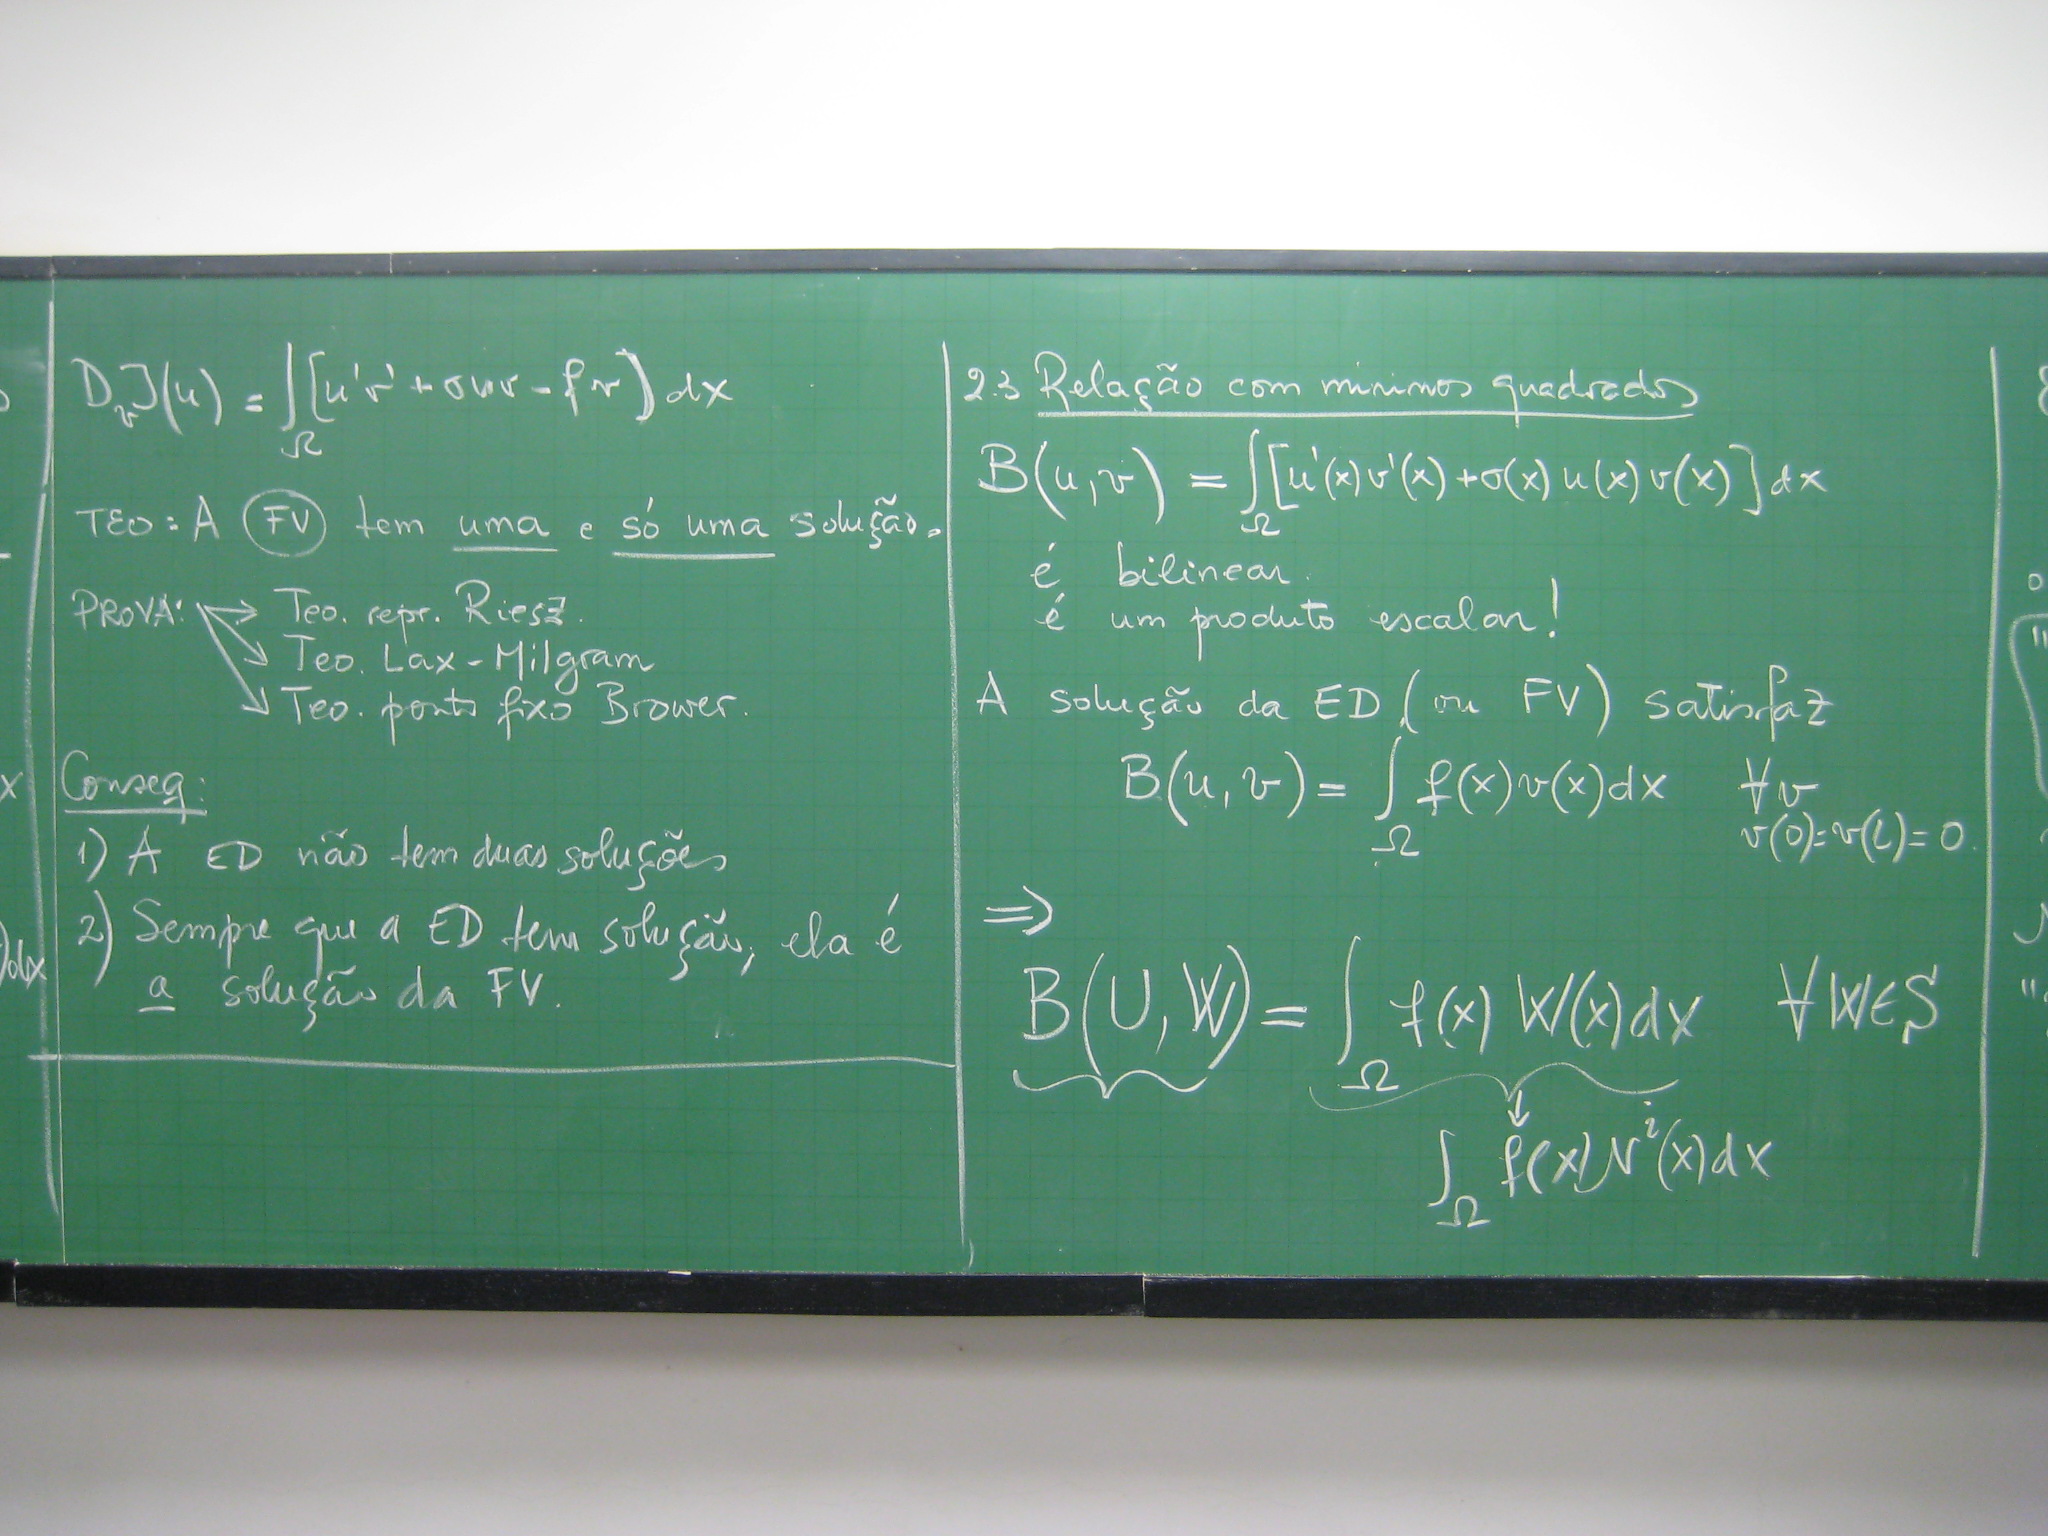 D_v J(u) = ∫_Ω [u'v' + σuv - fv] dx
TEO: A FV tem uma e só uma solução.
PROVA: → Teo. repr. Riesz.
→ Teo. Lax-Milgram
→ Teo. ponto fixo Brower.
Conseq:
1) A ED não tem duas soluções
2) Sempre que a ED tem solução, ela é
a solução da FV.
2.3 Relação com mínimos quadrados
B(u,v) = ∫_Ω [u'(x)v'(x) + σ(x)u(x)v(x)] dx
é bilinear.
é um produto escalar!
A solução da ED (ou FV) satisfaz
B(u,v) = ∫_Ω f(x)v(x)dx ∀v
v(0)=v(L)=0.
⇒
B(U,W) = ∫_Ω f(x)W(x)dx ∀W∈S
↓
∫_Ω f(x)N^i(x)dx
x
)dx